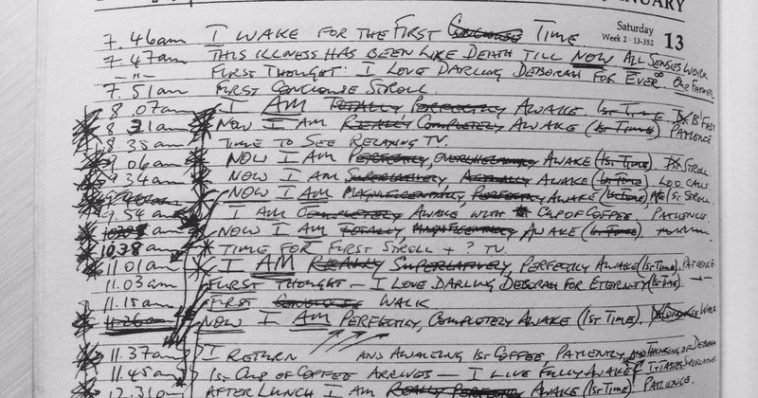 NUARY
Saturday
Week 2 · 13-352 13
7.46am I WAKE FOR THE FIRST TIME
7.47am THIS ILLNESS HAS BEEN LIKE DEATH TILL NOW ALL SENSES WORK
-"- FIRST THOUGHT: I LOVE DARLING DEBORAH FOR EVER. OUR FATHER
7.51am FIRST CONCIOUSE STROLL.
8.07am I AM TOTALLY PERFECTLY AWAKE. 1st TIME B'FAST
8.31am NOW I AM REALLY COMPLETELY AWAKE (1st TIME) PATIENCE
8.35am TIME TO SEE RELAXING TV.
9.06am NOW I AM PERFECTLY OVERWHELMINGLY AWAKE (1st TIME). STROLL
9.34am NOW I AM SUPERLATIVELY ACTUALLY AWAKE (1st TIME) LOO CALL
NOW I AM MAGNIFICENTLY PERFECTLY AWAKE (1st TIME) 1st STROLL
9.54am I AM COMPLETELY AWAKE WITH CUP OF COFFEE. PATIENCE
NOW I AM TOTALLY MAGNIFICENTLY AWAKE (1st TIME)
10.38am TIME FOR FIRST STROLL + ? TV.
11.01am I AM REALLY SUPERLATIVELY PERFECTLY AWAKE (1st TIME). PATIENCE
11.03am FIRST THOUGHT — I LOVE DARLING DEBORAH FOR ETERNITY (1st TIME).
11.15am FIRST CONCIOUSE WALK
11.26am NOW I AM PERFECTLY COMPLETELY AWAKE (1st TIME). WALK
11.37am I RETURN AND AWAITING 1st COFFEE PATIENTLY AND THINKING OF DEBORAH
11.45am 1st CUP OF COFFEE ARRIVES — I LIVE FULLY AWAKE!
12.31pm AFTER LUNCH I AM REALLY PERFECTLY AWAKE (1st TIME) PATIENCE.